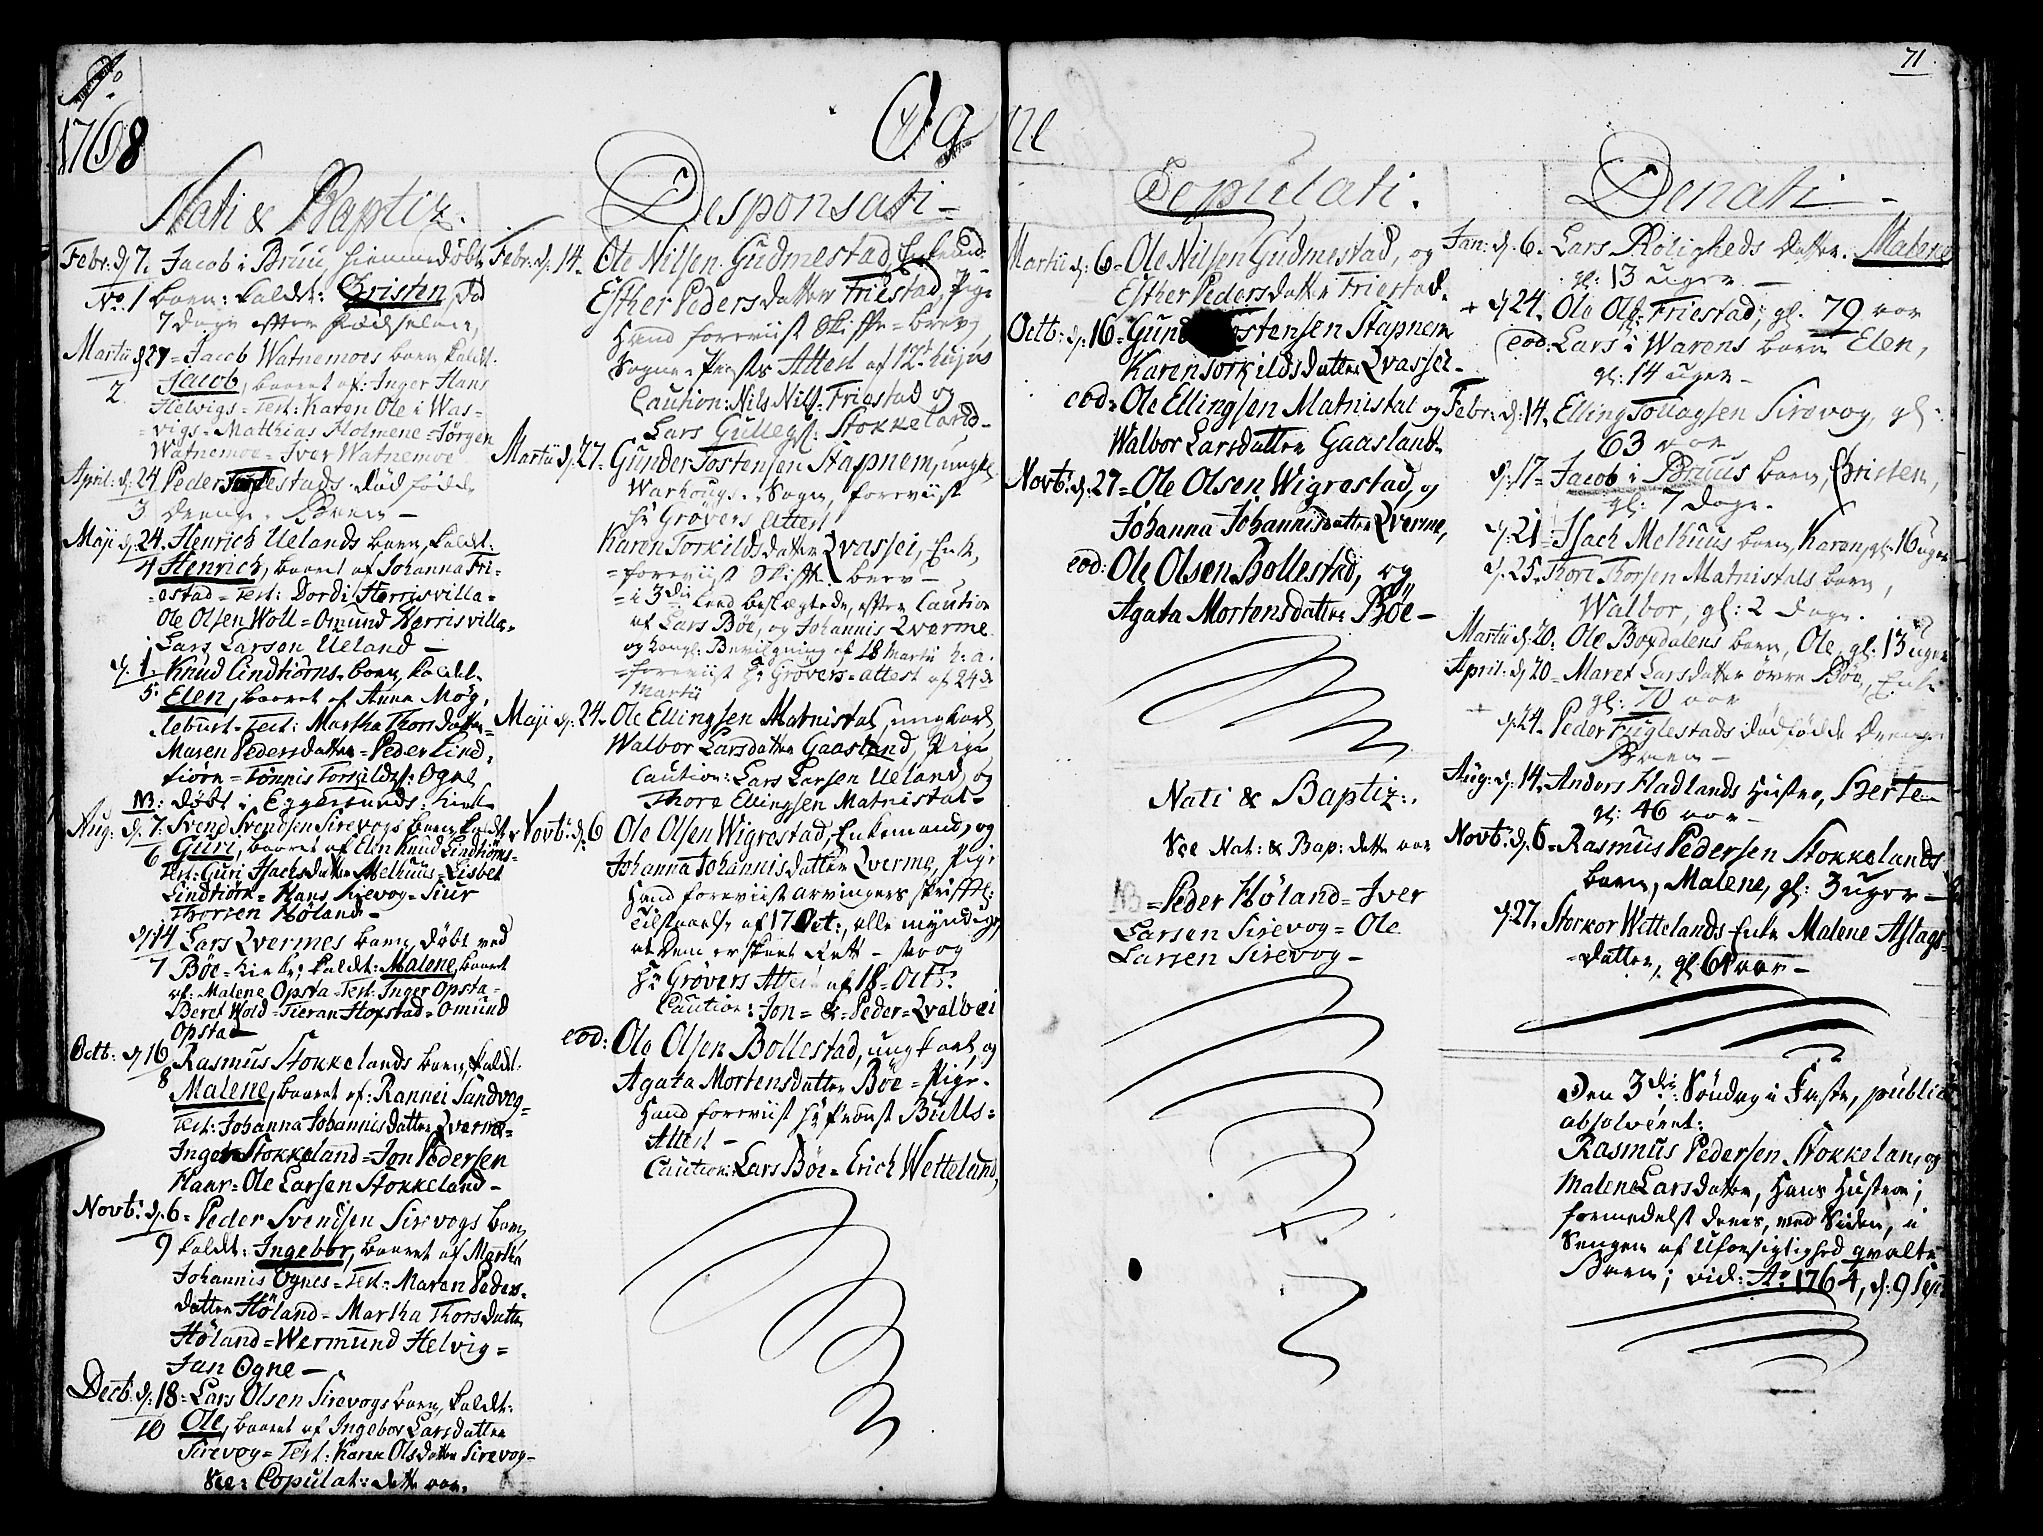 71
Ao
1768
Ogne
Nati & Baptiz.
Febr: d. 7. Jacob i Bruu hiemmedøbt
No. 1 barn: kaldt: Christen, død
7 dage efter Fødselen,
Martii d. 27 = Jacob Watnemoes barn kaldt:
2 Jacob, baaret af: Inger Hans
Helvigs = Test: Karen Ole i Was=
=vigs = Matthias Holmene = Jørgen
Watnemoe = Iver Watnemoe
April: d. 24 Peder Fuglestads død fødde
3 Drenge-Barn —
Maji d. 24. Henrich Uelands barn, kaldt:
4 Henrich, baaret af Johanna Fri=
=estad = Test: Dordi Herrisvilla=
Ole Olsen Woll = Omund Herrisvilla=
Lars Larsen Ueland —
d. 1. Knud Lindtiørns barn, kaldt
5. Elen, baaret af Anna Mog,
lebust = Test: Martha Thorsdatter=
Maren Pedersdatter = Peder Lind,
tiørn = Tønnis Torkildss: Ogne
NB: døbt i Eggersunds: kirke
Aug: d. 7: Svend Svendsen Sirevogs barn, kaldt
6 Guri, baaret af Elin Knud Lindtiørns=
Test: Guri Isachsdatter Melhuus = Lisbet
Lindtiørn = Hans Sirevog = Siur
Thorsen Høland =
d. 14 Lars Qvermes barn, døbt ved
7 Bøe = kirke; kaldt: Malene, baaret
af: Malene Opsta = Test: Inger Opsta=
Beret Wold = Tieran Hofstad = Omund
Opstad
Octb: d. 16 Rasmus Stokkelands barn, kaldt:
8 Malene, baaret af: Rannei Sandvog=
Test: Johanna Johannisdatter Qverme=
Inger Stokkeland = Jon Pedersen
Haar = Ole Larsen Stokkeland —
Novb: d. 6 = Peder Svendsen Sirevogs barn,
9 kaldt: Ingebor, baaret af Martha
Johannis Ognes = Test: Maren Peders=
datter Høland = Martha Thorsdatter
Høland = Wermund Helvig =
Jan Ogne —
Decb: d. 18 = Lars Olsen Sirevogs barn, kaldt:
10 Ole, baaret af Ingebor Larsdatter
Sirevog = Test: Karen Olsdatter Sirevog=
See: Copulat: dette aar.
Desponsati =
Febr: d. 14. Ole Nilsen Gudmestad, Enkemand
Esther Pedersdatter Friestad, Pige
Hand foreviist Skifte = brev,
Sogne-Præsts Attest af 12te hujus
Caution: Nils Nilss: Friestad og
Lars Gullegss: Stokkeland —
Martii d. 27 = Gunder Tostensen Stapnem, ungkl
Warhougs = Sogn, foreviist
Hr Grøvers Attest
Karen Torkildsdatter Qvassei, Enke,
=foreviist Skifte brev —
=i 3die Leed beslægtede, efter Caution
af Lars Bøe, og Johannis Qverme
og kongl: Bevilgning af 18 Martii h: a:
=foreviist Hr Grøvers = attest af 24de
Martii
Maji d. 24. Ole Ellingsen Matnistal, ungkarl
Walbor Larsdatter Gaasland, Pige
Caution: Lars Larsen Ueland og
Thore Ellingsen Matnistal —
Novb: d. 6 Ole Olsen Wigrestad, Enkemand, og
Johanna Johannisdatter Qverme, Pige
Hand foreviist arvingers skriftl:
tilstaaelse af 17 Oct:, alle myndige,
at dem er skeet Rett —
Hr Grøvers Attest af 18 = Octb:
Caution: Jon = & = Peder = Qvalbei
eod: Ole Olsen Bollestad, ungkarl, og
Agata Mortensdatter Bøe = Pige.
Hand foreviist Hr Provst Bulls=
Attest —
Caution: Lars Bøe = Erich Wetteland,
Copulati.
Martii d. 6 = Ole Nilsen Gudmestad, og
Esther Pedersdatter Friestad.
Octb: d. 16 = Gunder Tostensen Stapnem
Karen Torkildsdatter Qvassei —
eod = Ole Ellingsen Matnistal og
Walbor Larsdatter Gaasland.
Novb: d. 27 = Ole Olsen Wigrestad, og
Johanna Johannisdatter Qverme,
eod: Ole Olsen Bollestad, og
Agata Mortensdatter Bøe —
Nati & Baptiz:.
See Nat: & Bap: dette aar
NB = Peder Høland = Iver
Larsen Sirevog = Ole
Larsen Sirevog —
Denati —
Jan: d. 6. Lars Roligheds datter. Malene
gl: 13 uger —
+ d. 24. Ole Ols: Friestad, gl. 79 aar
eod: Lars i Warens barn Elen,
gl: 14 uger —
Febr: d. 14. Elling Tollagsen Sirevog, gl:
63 aar
d. 17 = Jacob i Bruus barn, Christen,
gl: 7 dage.
d. 21 = Isach Melhuus barn, Karen, gl: 16 uger
d. 25. Thore Thorsen Matnistals barn,
Walbor, gl: 2 dage.
Martii d. 20. Ole Boxdalens barn, Ole, gl: 13 uger
April: d. 20 = Maret Larsdatter øvre Bøe, Enke
gl: 70 aar
+ d. 24. Peder Fuglestads dødfødde Drenge
Barn —
Aug: d. 14. Anders Hadlands Hustro, Berte
gl: 46 aar —
Novb: d. 6 = Rasmus Pedersen Stokkelands
barn, Malene, gl: 3 uger —
d. 27. Storkor Wettelands Enke Malene Aslags=
=datter, gl: 61 aar —
Den 3die Søndag i Faste, public
absolveret:
Rasmus Pedersen Stokkeland, og
Malene Larsdatter, Hans Hustroe;
formedelst deres, ved Siden, i
Sengen af Uforsigtighed qvalte
Barn; vid: Ao 1764, d. 9 Sept